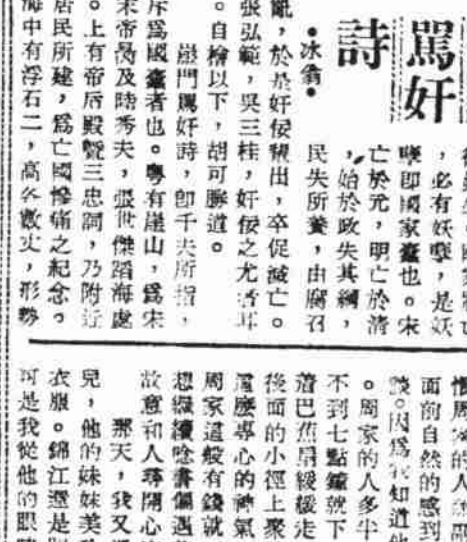 罵奸
詩
•冰翁•
，必有妖孽，是妖
孽即國家蠹也。宋
亡於元，明亡於清
，始於政失其綱，
民失所養，由腐召
亂，於是奸佞輩出，卒促滅亡。
張弘範，吳三桂，奸佞之尤者耳
。自檜以下，胡可勝道。
崖門罵奸詩，卽千夫所指，
斥爲國蠹者也。粵有崖山，爲宋
末帝昺及陸秀夫，張世傑蹈海處
。上有帝后殿暨三忠祠，乃附近
居民所建，爲亡國慘痛之紀念。
海中有浮石二，高各數丈，形勢
面前自然的感到
談。因爲我知道他
。周家的人多半
不到七點鐘就下
着巴蕉扇緩緩走
後面的小徑上聚
這麼專心的神氣
周家這般有錢就
想繼續唸書偏遇
故意和人尋開心
那天，我又
兒，他的妹妹美
衣服。錦江還是
可是我從他的眼